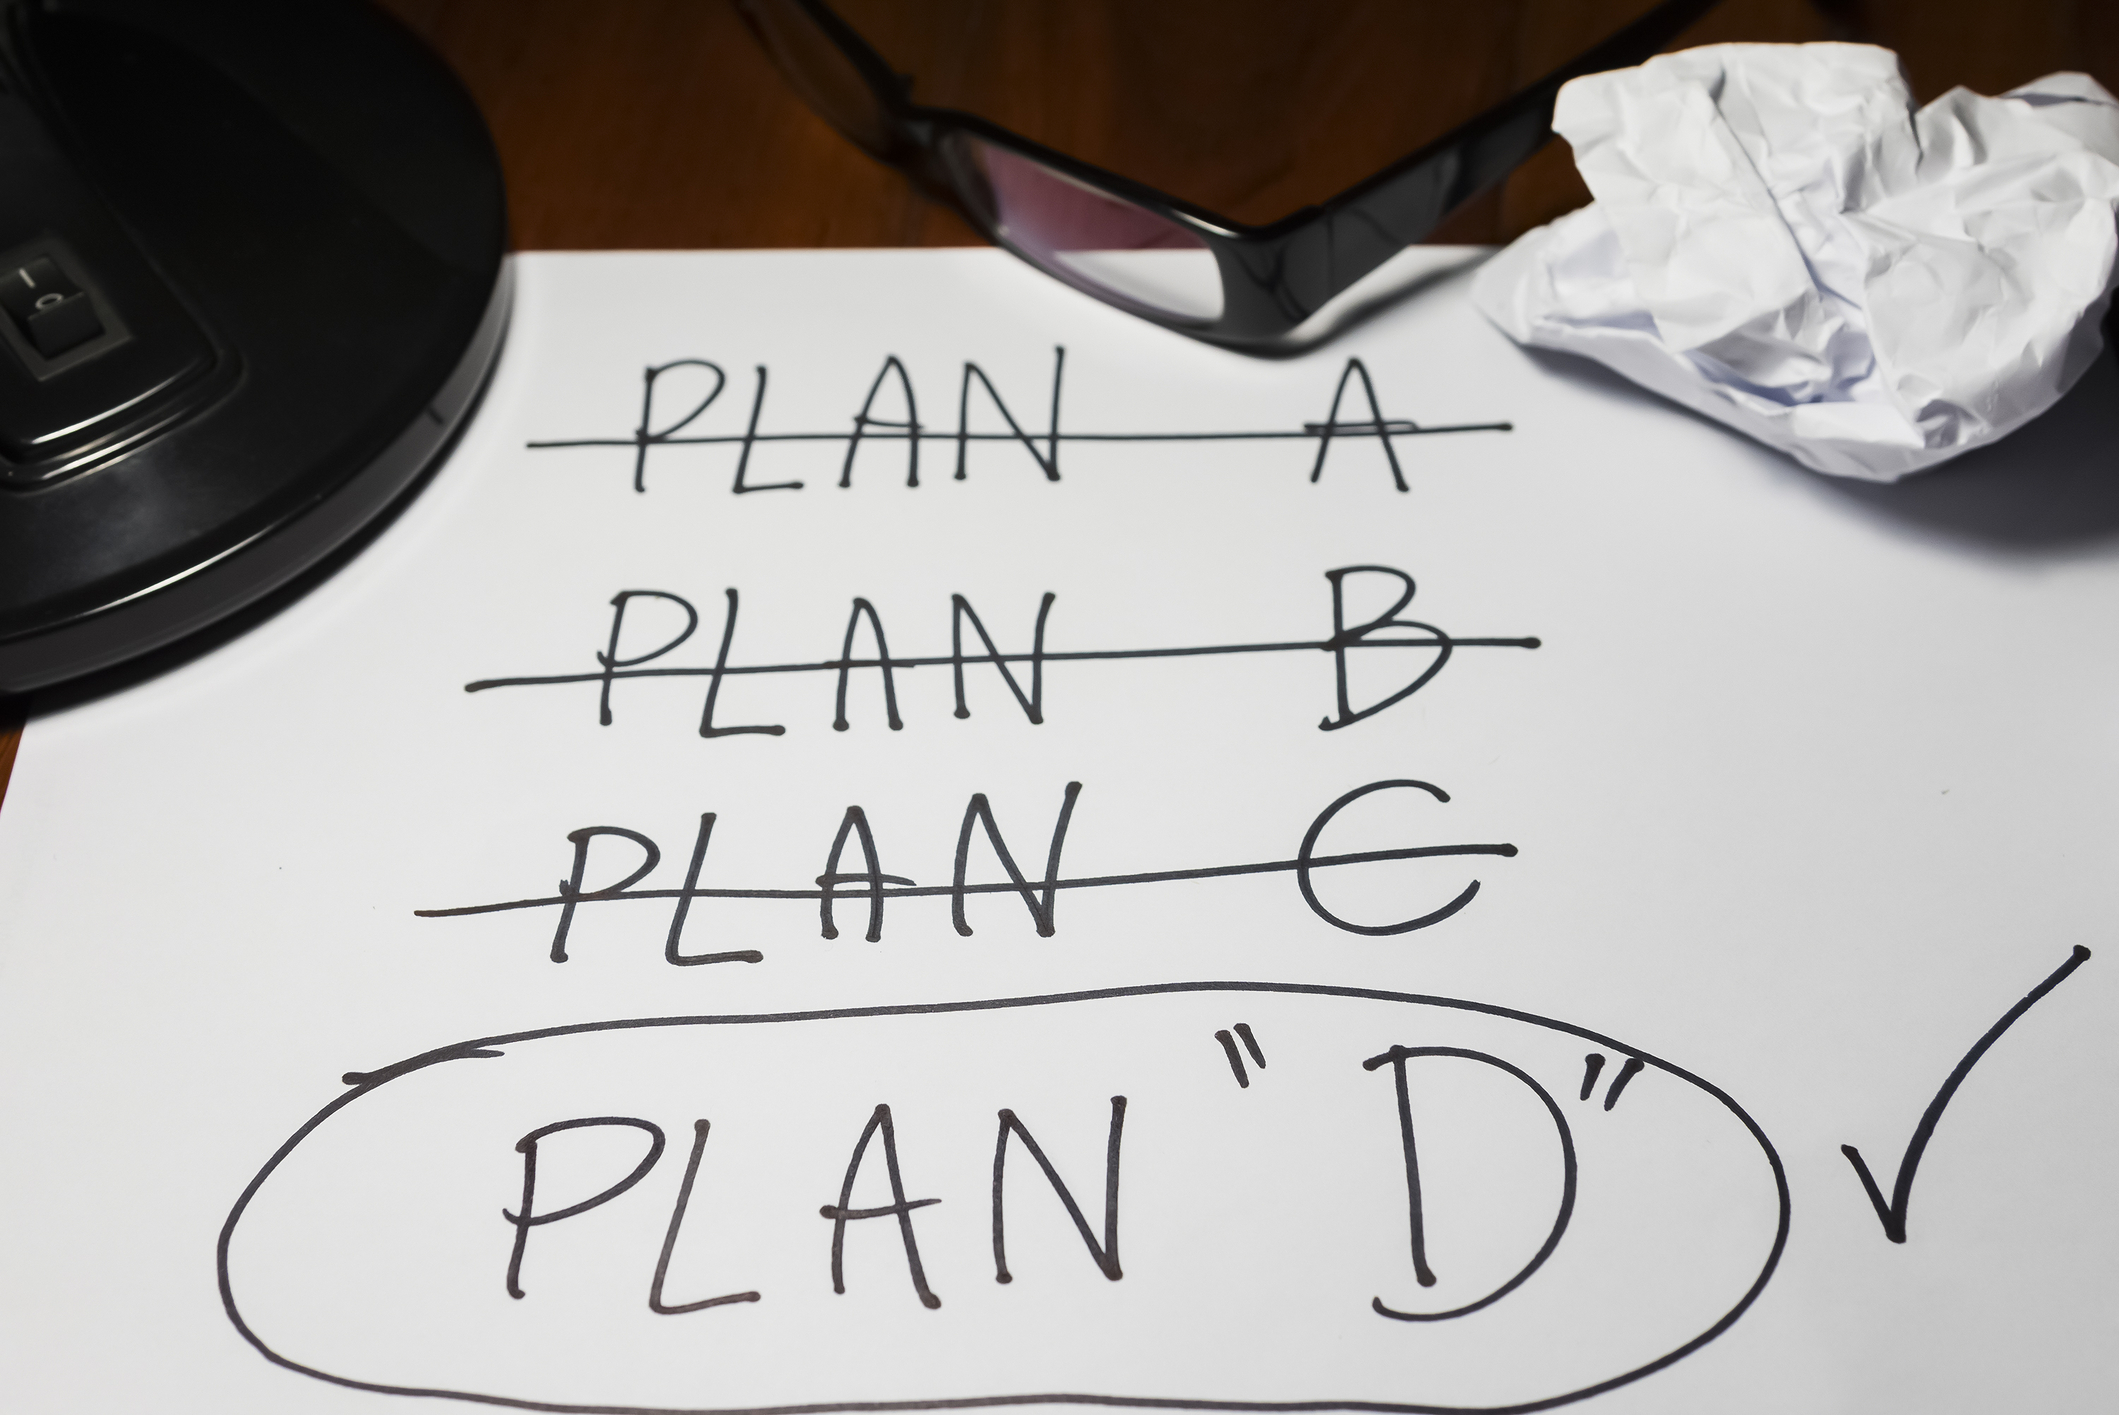 PLAN A
PLAN B
PLAN C
PLAN "D"